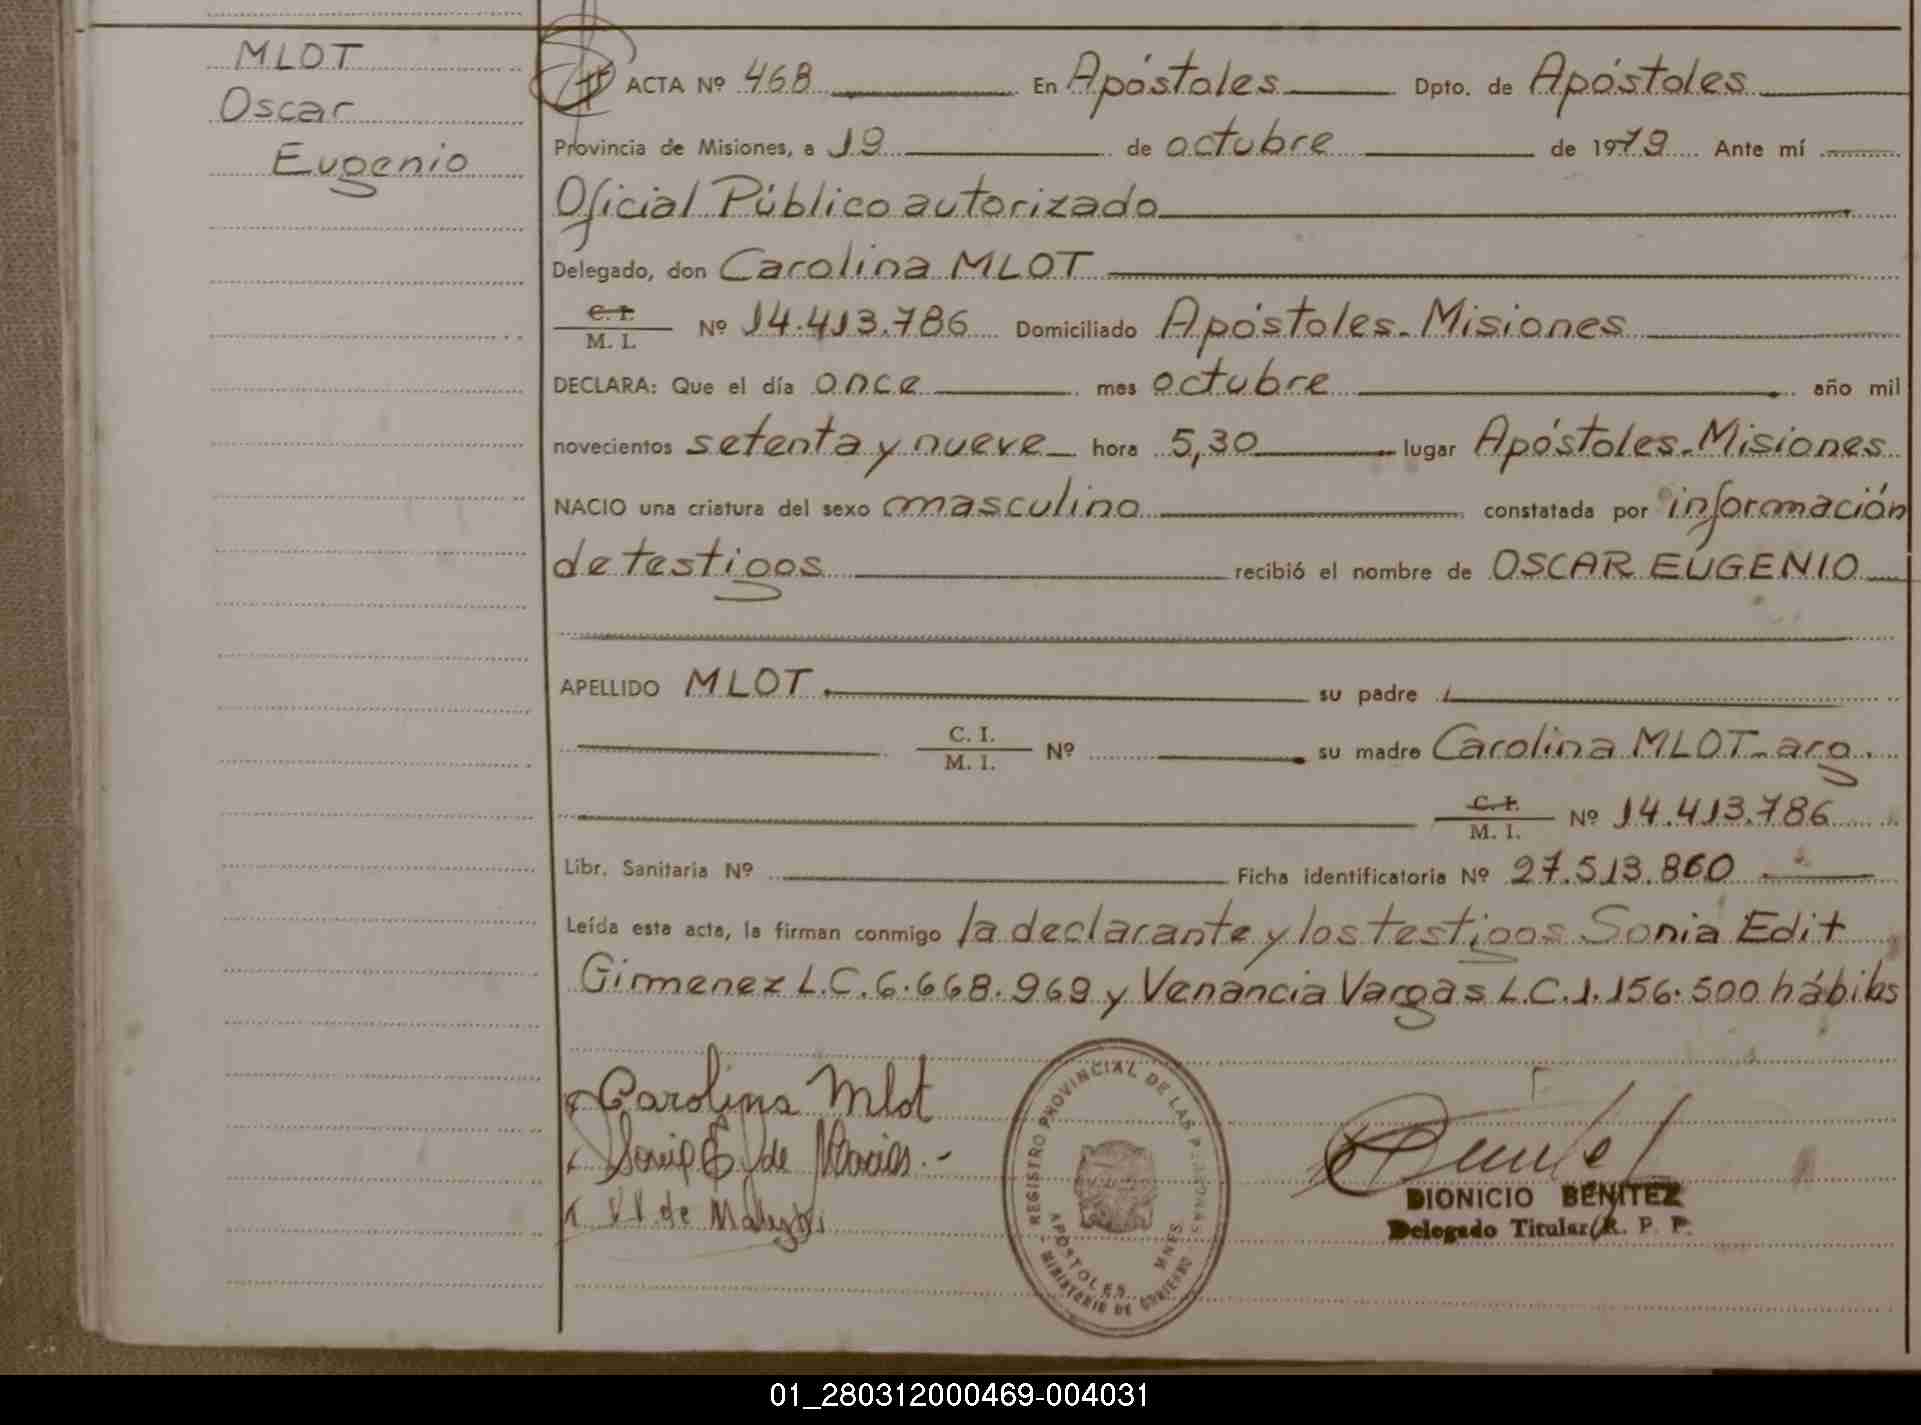 MLOT
Oscar
Eugenio
ACTA Nº 468 En Apóstoles Dpto. de Apóstoles
Provincia de Misiones, a 19 de octubre de 1979 Ante mí
Oficial Público autorizado
Delegado, don Carolina MLOT
C. I.
M. I. Nº 14.413.786 Domiciliado Apóstoles-Misiones
DECLARA: Que el día once mes octubre año mil
novecientos setenta y nueve hora 5,30 lugar Apóstoles-Misiones
NACIO una criatura del sexo masculino constatada por información
de testigos recibió el nombre de OSCAR EUGENIO
APELLIDO MLOT su padre
C. I.
M. I. Nº su madre Carolina MLOT-arg.
C. I.
M. I. Nº 14.413.786
Libr. Sanitaria Nº Ficha identificatoria Nº 27.513.860
Leída esta acta, la firman conmigo la declarante y los testigos Sonia Edit
Girmenez L.C.6.668.969 y Venancia Vargas L.C.1.156.500 hábiles
Carolina Mlot
REGISTRO PROVINCIAL DE LAS PERSONAS
APOSTOLES MNES.
MINISTERIO DE GOBIERNO
E. de
V. de
DIONICIO BENITEZ
Delegado Titular R. P. P.
01_280312000469-004031